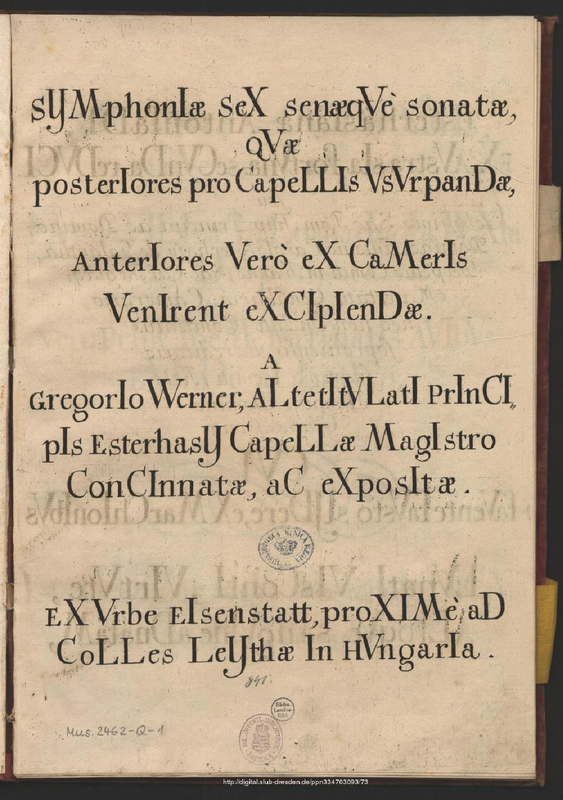 sYMphonIæ SeX senæqVè sonatæ,
QVæ
posterIores pro CapeLLIs VsVrpanDæ,
AnterIores Verò eX CaMerIs
VenIrent eXCIpIenDæ.
A
GregorIo Werner, ALtetItVLatI PrInCI„
pIs EsterhasIJ CapeLLæ MagIstro
ConCInnatæ, aC eXposItæ.
EX Vrbe EIsenstatt, proXIMè, aD
CoLLes LeYthæ In HVngarIa.
841.
Mus. 2462-Q-1
http://digital.slub-dresden.de/ppn334703093/73